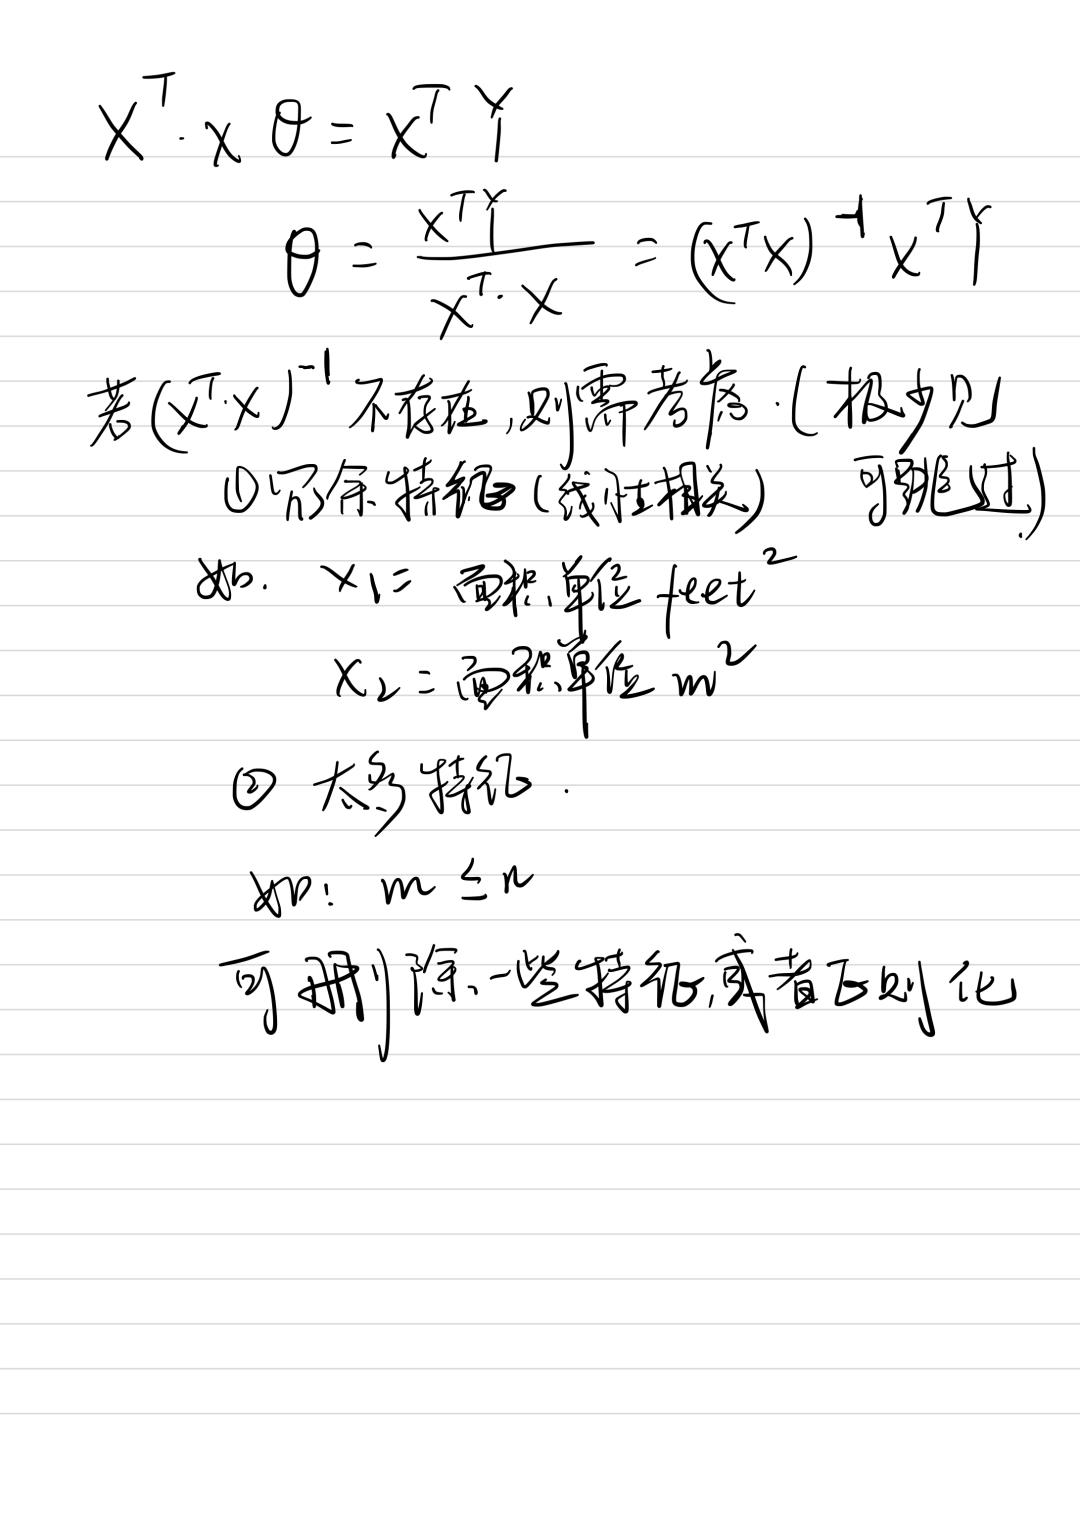 X^T · X θ = X^T Y
θ = \frac{X^T Y}{X^T · X} = (X^T X)^{-1} X^T Y
若 (X^T · X)^{-1} 不存在,则需考虑.(极少见
①冗余特征(线性相关) 可跳过.)
如. x_1 = 面积,单位 feet^2
x_2 = 面积,单位 m^2
② 太多特征.
如: m ≤ n
可删除一些特征,或者正则化